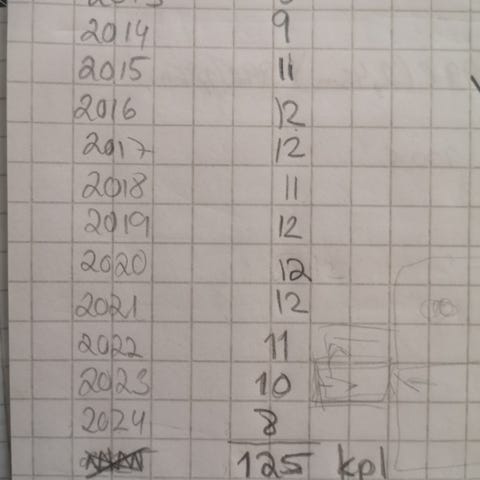 2014 9
2015 11
2016 12
2017 12
2018 11
2019 12
2020 12
2021 12
2022 11
2023 10
2024 8
125 kpl